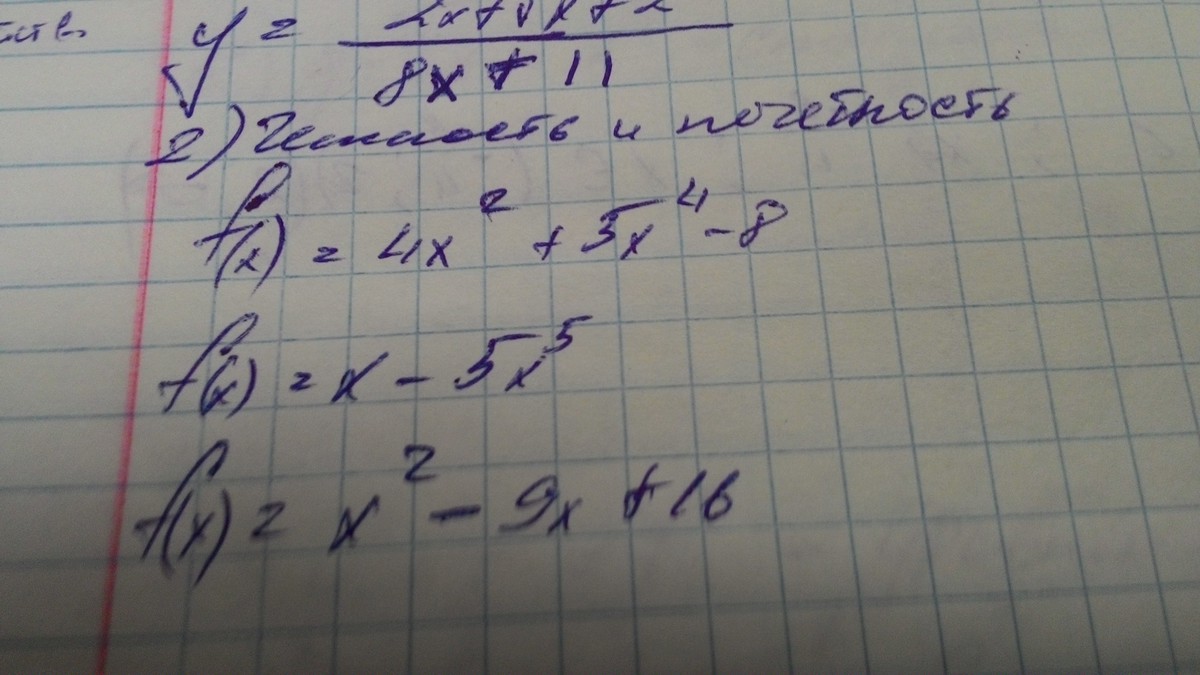 y =
8x + 11
2) Четность и нечетность
f(x) = 4x² + 5x⁴ - 8
f(x) = x - 5x⁵
f(x) = x² - 9x + 16